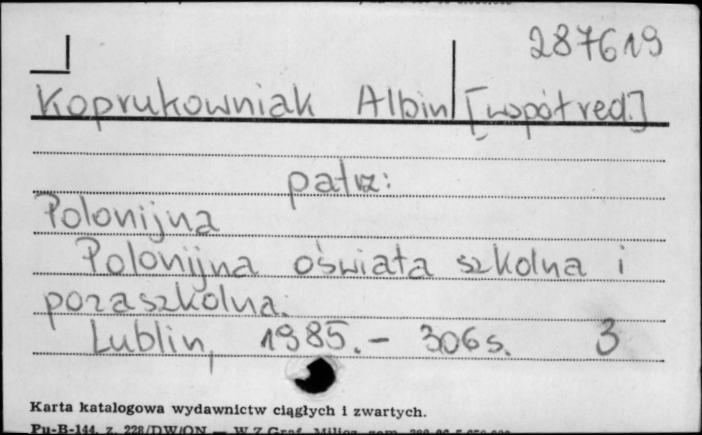 287619
Koprukowniak Albin [współred.]
patrz:
Polonijna
Polonijna oświata szkolna i
pozaszkolna.
Lublin, 1985.- 306 s. 3
Karta katalogowa wydawnictw ciągłych i zwartych.
Pu-B-144, z. 228/DW/ON — W Z Graf.